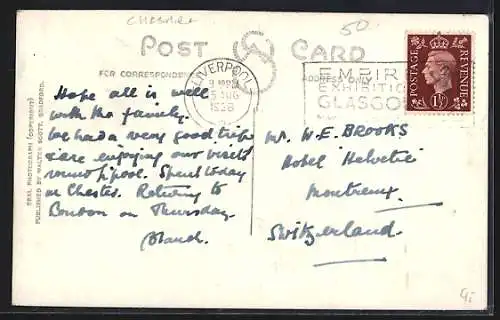 CHESHIRE
50
POST CARD
FOR CORRESPONDENCE
ADDRESS ONLY
LIVERPOOL
5 AUG
1938
EMPIRE
EXHIBITION
GLASGOW
POSTAGE REVENUE
1½
REAL PHOTOGRAPH (COPYRIGHT)
PUBLISHED BY WALTER SCOTT, BRADFORD.
Hope all is well
with the family.
We had a very good trip
& are enjoying our visits
round L'pool. Spent today
in Chester. Returning to
London on Thursday.
Blanch.
Mr. W. E. BROOKS
Hotel Helvetie
Montreux
Switzerland